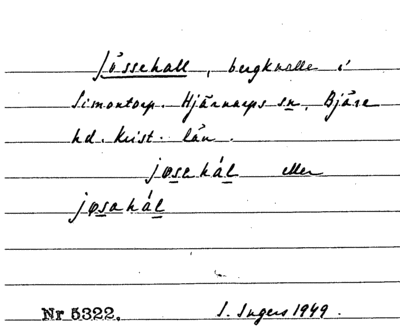 Jössehall, bergknalle i
Simontorp. Hjärnarps sn, Bjäre
hd. Krist. län.
jøsehál eller
jøsahál
Nr 5322. I. Ingers 1949.